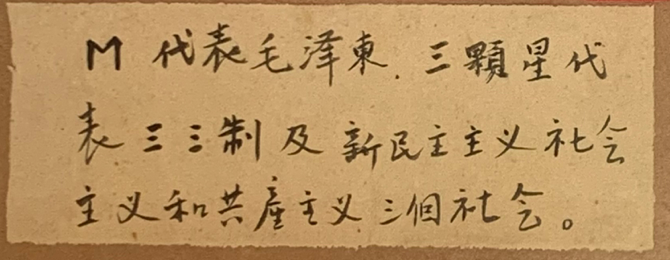 M 代表毛泽東．三顆星代
表三三制及新民主主义社会
主义和共產主义三個社会。